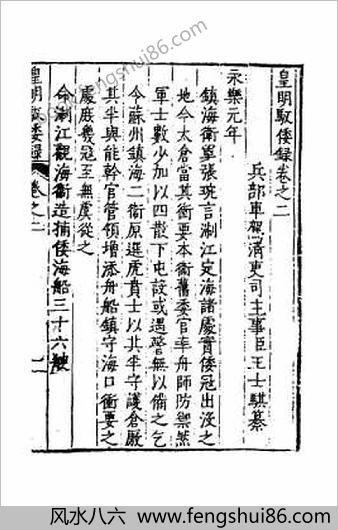 風水八六-fengshui86.com
皇明馭倭錄卷之二
兵部車駕淸吏司主事臣王士騏纂
永樂元年
鎮海衛軍張琬言浙江定海諸處實倭冦出沒之
地今太倉當其衝要本衛舊委官率舟師防禦然
軍士數少加以四散下屯設或遇警無以備之乞
今蘇州鎮海二衛原選虎賁士以其半守護倉厫
其半與能幹官管領增添舟船鎮守海口衝要之
處庶幾冦至無虞從之
命浙江觀海衛造捕倭海船三十六艘
皇明馭倭錄 卷之二 一
风水八六 - www.fengshui86.com